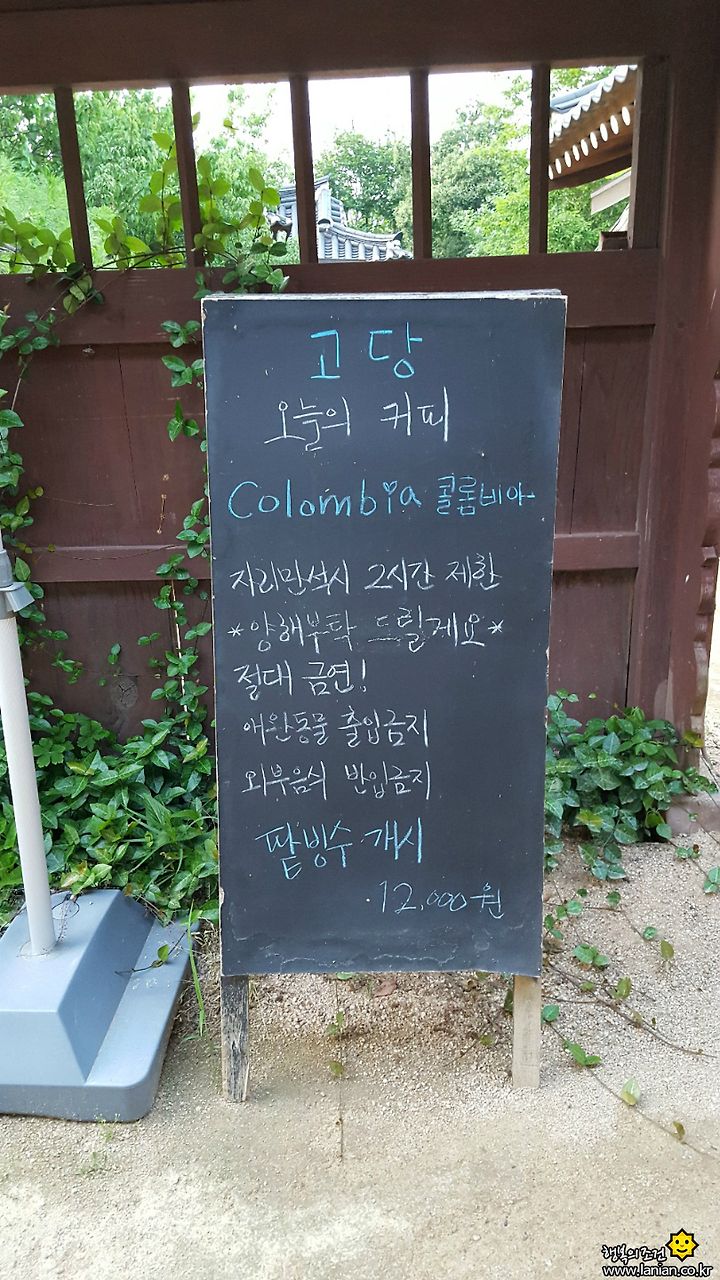 고당
오늘의 커피
Colombia 콜롬비아
자리만석시 2시간 제한
*양해부탁 드릴게요*
절대 금연!
애완동물 출입금지
외부음식 반입금지
팥빙수 개시
12,000원
행복의조건
www.lanian.co.kr